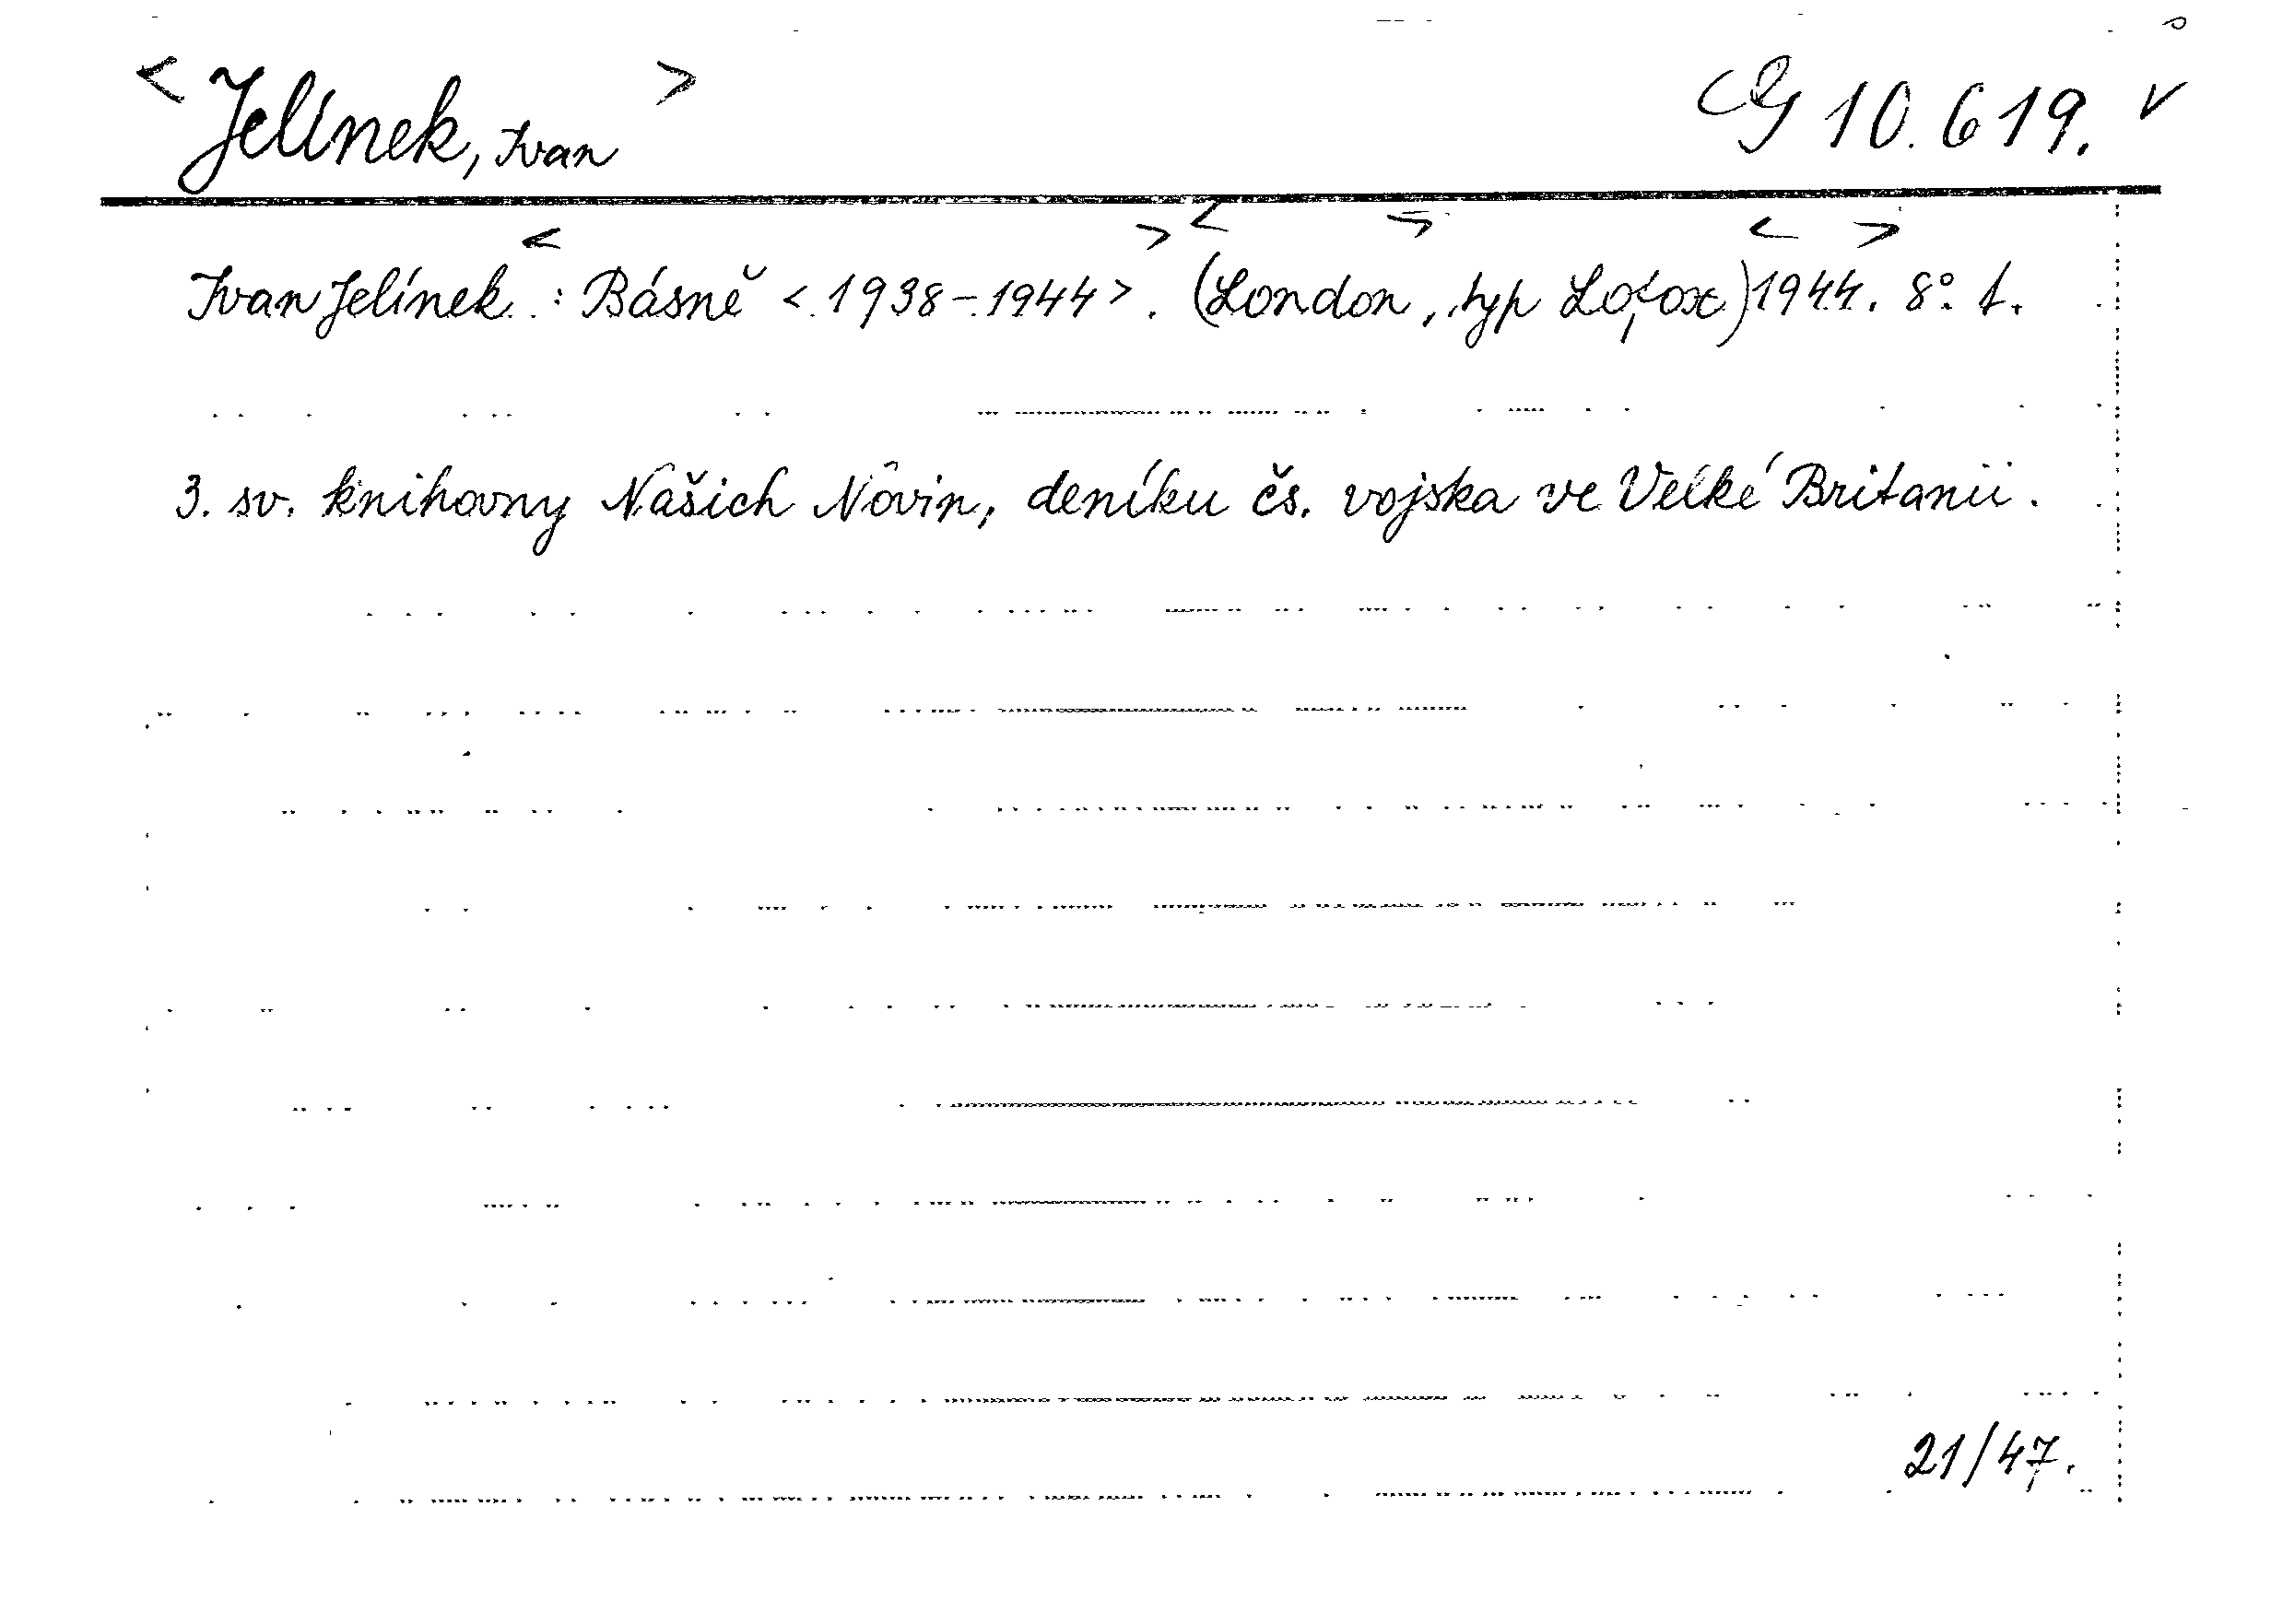 <Jelínek, Ivan> G 10.619. v
Ivan Jelínek : Básně <1938-1944>. (London, typ Lofox) 1944. 8°. f.
3. sv. knihovny Našich Novin, deníku čs. vojska ve Velké Britanii.
21/47.